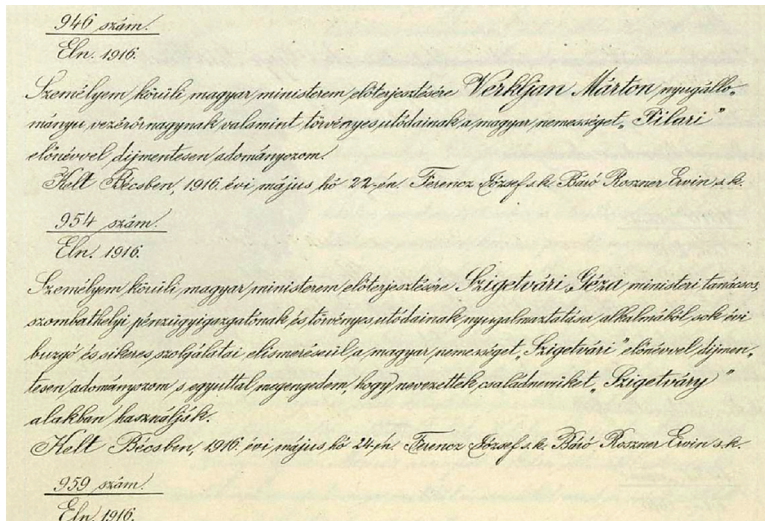 946 szám.
Eln. 1916.
Személyem körüli magyar ministerem előterjesztésére Verkljan Márton nyugállo-
mányu vezérőrnagynak valamint törvényes utódainak a magyar nemességet „Pilari”
előnévvel díjmentesen adományozom.
Kelt Bécsben, 1916. évi május hó 22-én. Ferencz József s.k. Báró Roszner Ervin s.k.
954 szám.
Eln. 1916.
Személyem körüli magyar ministerem előterjesztésére Szigetvári Géza ministeri tanácsos,
szombathelyi pénzügyigazgatónak és törvényes utódainak nyugalmaztatása alkalmából sok évi
buzgó és sikeres szolgálatai elismeréseül a magyar nemességet „Szigetvári” előnévvel díjmen-
tesen adományozom s egyúttal megengedem, hogy nevezettek családnevüket „Szigetváry”
alakban használják.
Kelt Bécsben, 1916. évi május hó 24-én. Ferencz József s.k. Báró Roszner Ervin s.k.
959 szám.
Eln. 1916.